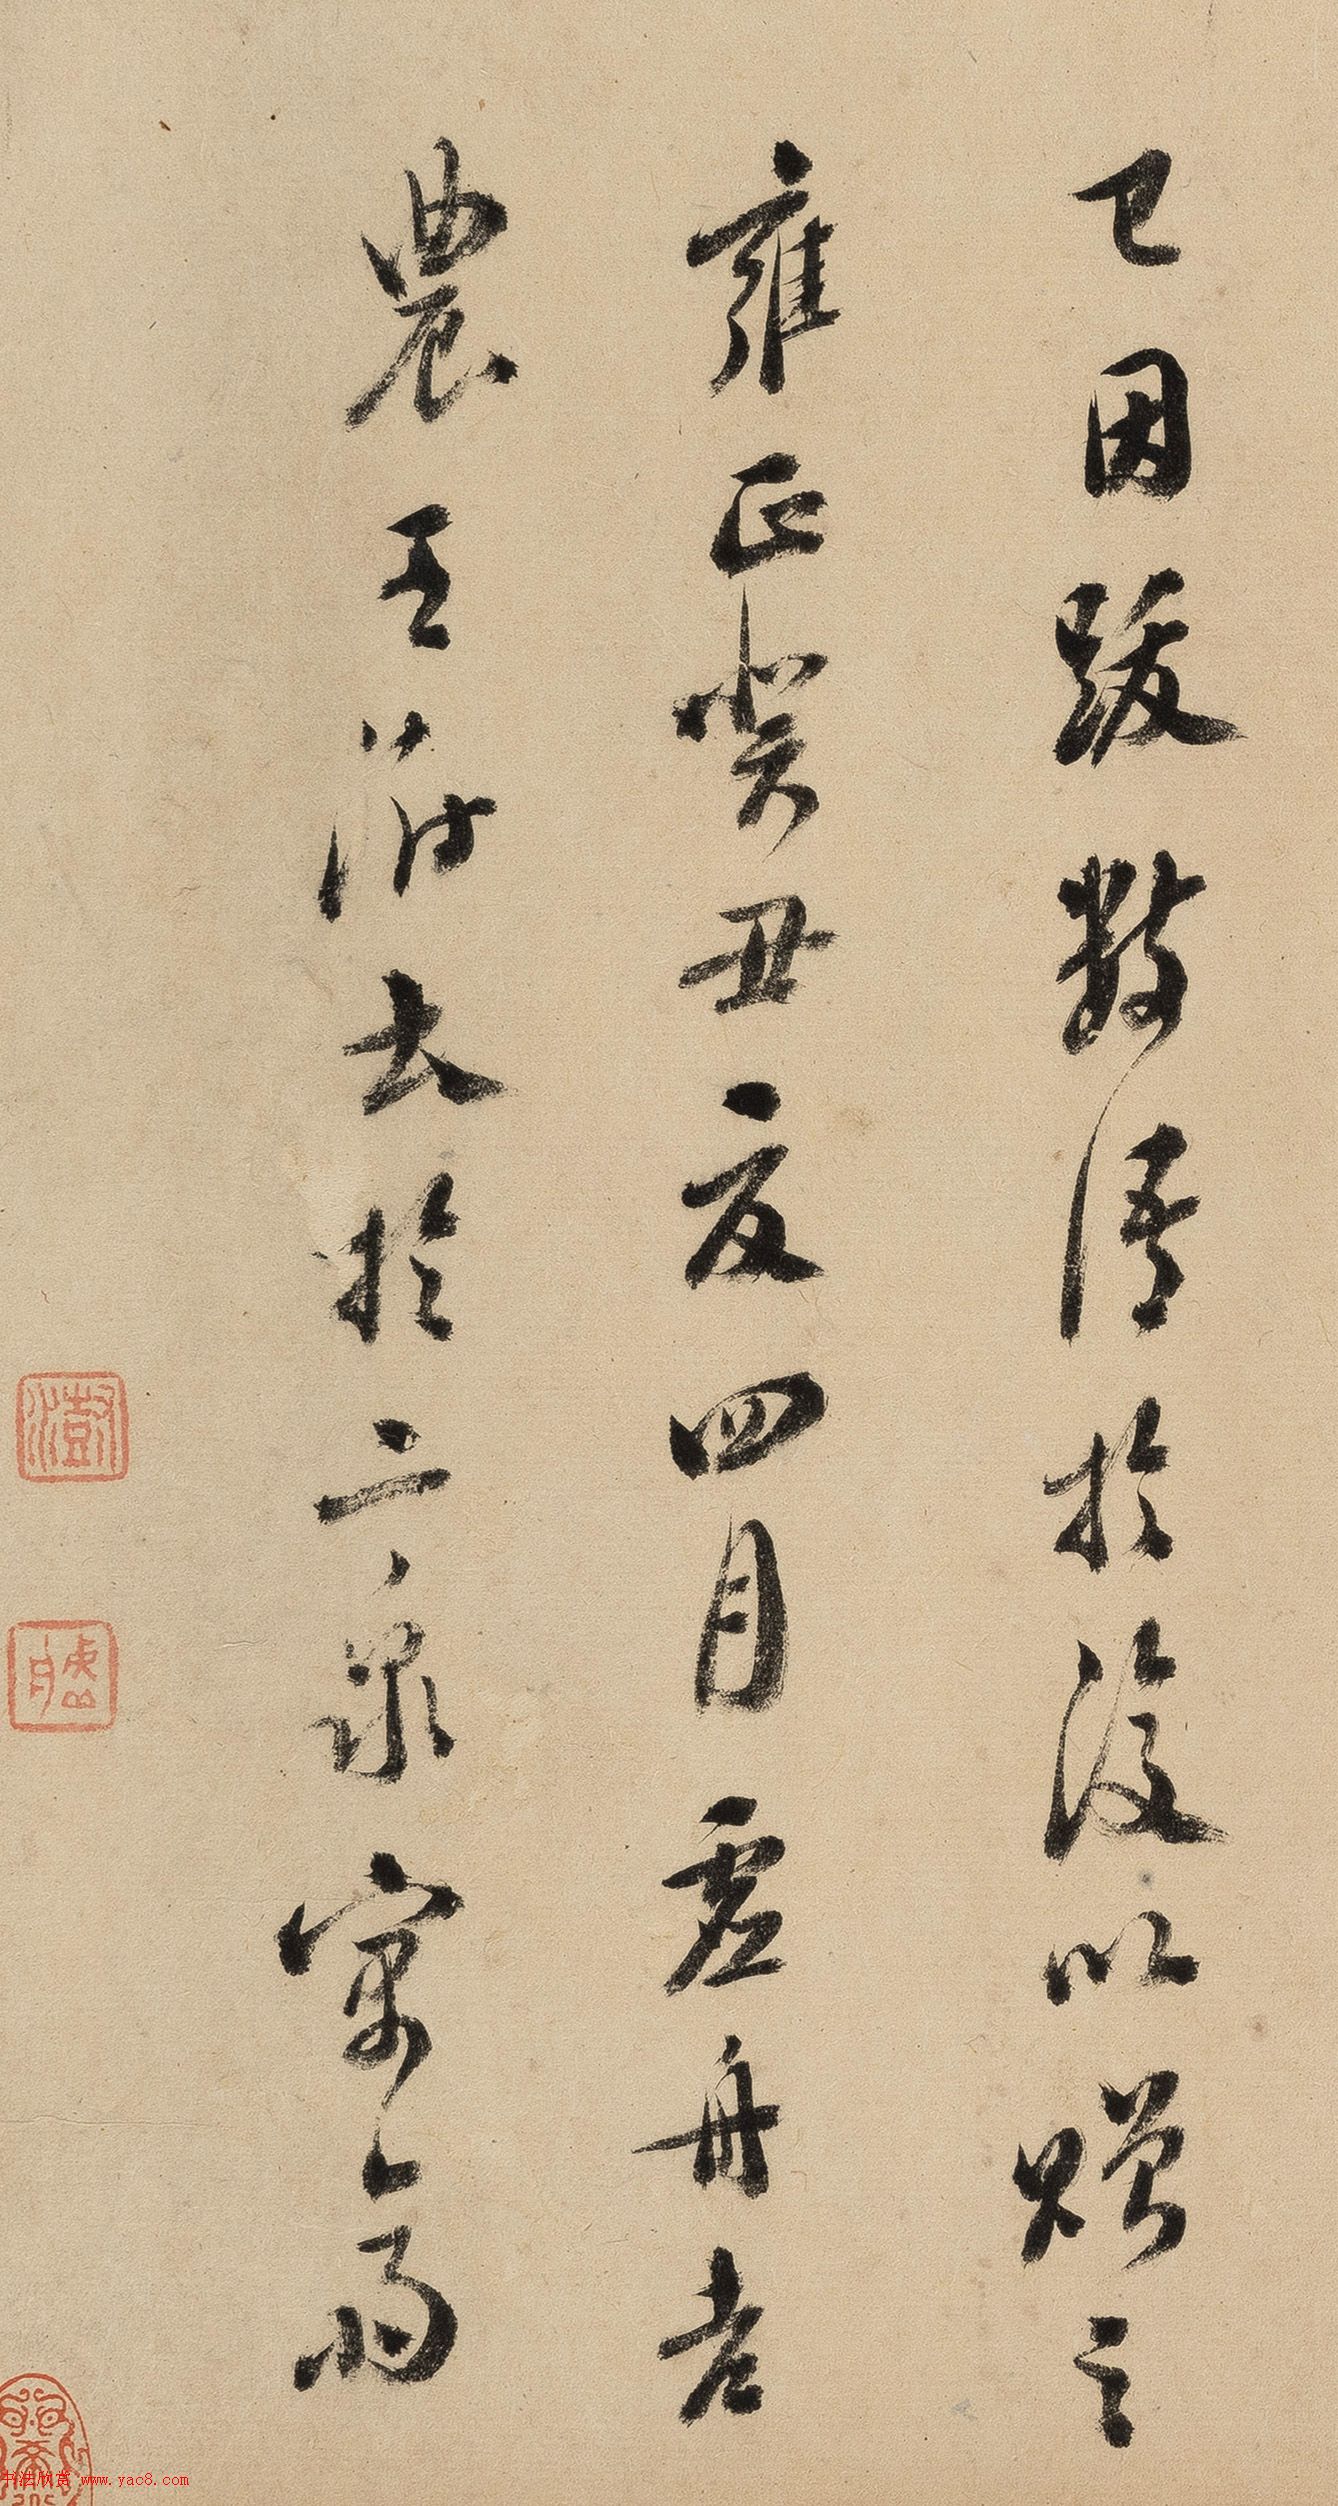 已因跋數語於後以贈之
雍正癸丑夏四月虛舟老
農王澍書於二泉寓齋
澍
虛舟
书法欣赏 www.yac8.com